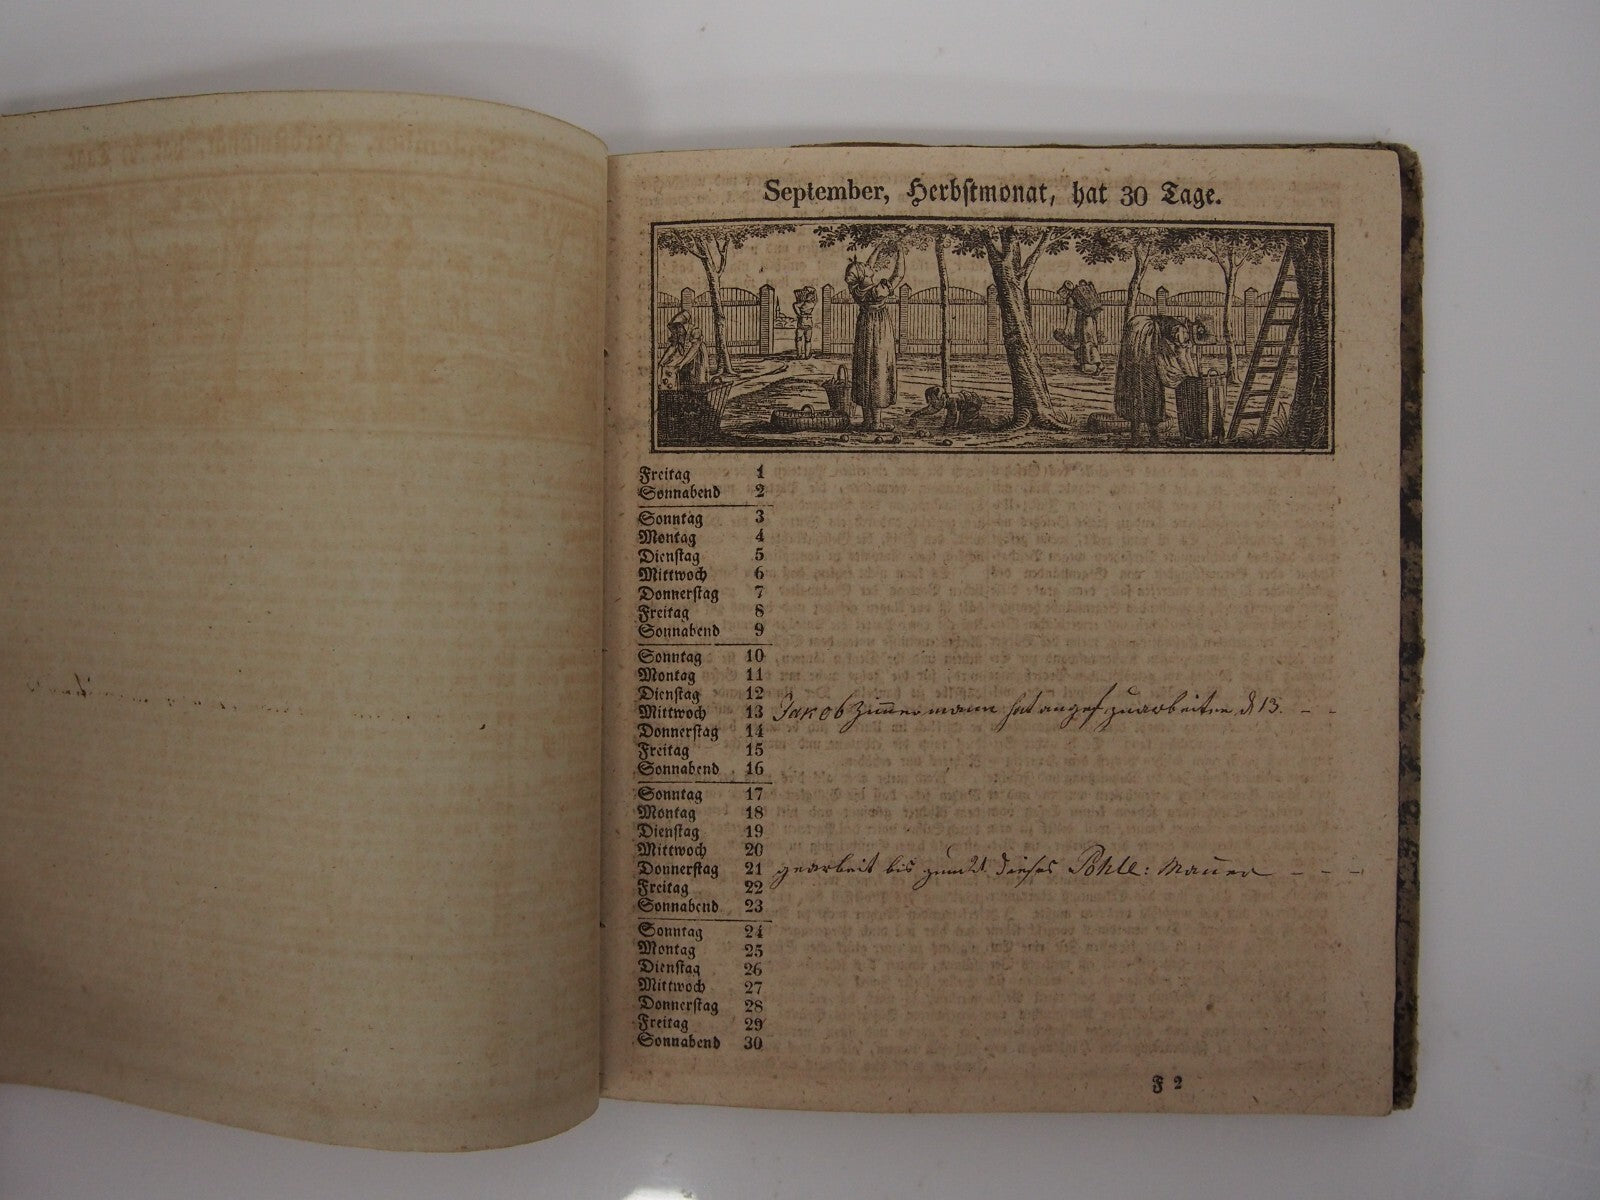 September, Herbstmonat, hat 30 Tage.
Freitag 1
Sonnabend 2
Sonntag 3
Montag 4
Dienstag 5
Mittwoch 6
Donnerstag 7
Freitag 8
Sonnabend 9
Sonntag 10
Montag 11
Dienstag 12
Mittwoch 13 Jakob Zimmermann hat angef zuarbeiten d 13. - -
Donnerstag 14
Freitag 15
Sonnabend 16
Sonntag 17
Montag 18
Dienstag 19
Mittwoch 20
Donnerstag 21 gearbeit bis dieses Pohle: Maurer - - -
Freitag 22
Sonnabend 23
Sonntag 24
Montag 25
Dienstag 26
Mittwoch 27
Donnerstag 28
Freitag 29
Sonnabend 30
F 2